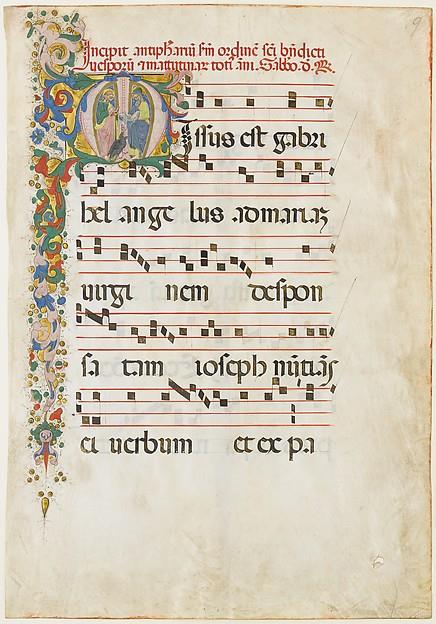 Incipit antiphariũ scd̃m ordinẽ sc̃i bñdicti
uesperũ ⁊ matutinar totĩ añi. Sabbo. d. R.
Missus est gabri
hel ange lus ad mariã
uirgi nem despon
sa tam ioseph nũtiãs
ei uerbum et ex pa